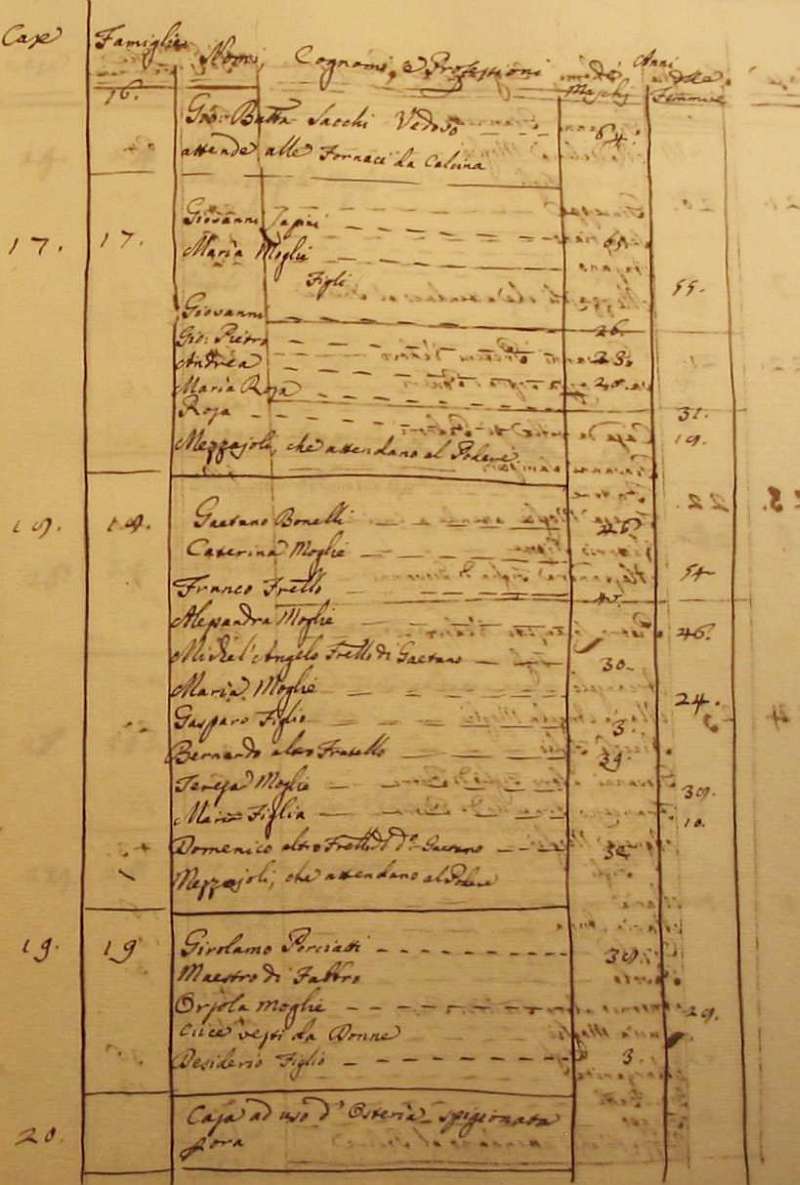 Case Famiglie Nomi, Cognomi, e Professioni Anni
de Maschj delle Femmine
16. Gio: Batta Sacchi Vedovo 64.
attende alle Fornaci da Calcina
17. 17. Giovanni
Maria Moglie 55.
Figli
Giovanni 26.
Gio: Pietro 23.
Andrea
Maria Rosa 31.
Rosa 19.
Mezzajoli, che attendano al Podere
Gaetano Bonelli
Caterina Moglie 54
Franco Frello
Alessandra Moglie 46.
Michel'Angelo Frello di Gaetano 30.
Maria Moglie 24.
Gasparo Figlio 3.
Bernardo altro Fratello
Teresa Moglie
Maria Figlia 10.
Domenico altro Frello di do. Gaetano
Mezzajoli, che attendano al Podere
19. 19 Girolamo
Maestro di
Orsola Moglie 29.
cuce vesti da Donne
Desiderio Figlio 3.
20. Casa ad uso d'Osteria spigionata